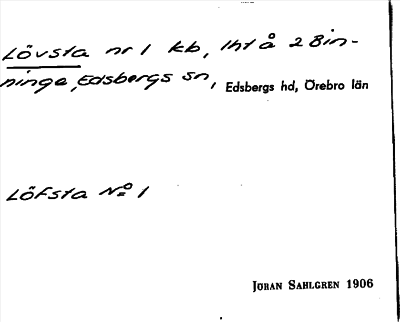 Lövsta nr 1 kb, lht å 2 Bin-
ninge, Edsbergs sn, Edsbergs hd, Örebro län
Löfsta No 1
Jöran Sahlgren 1906